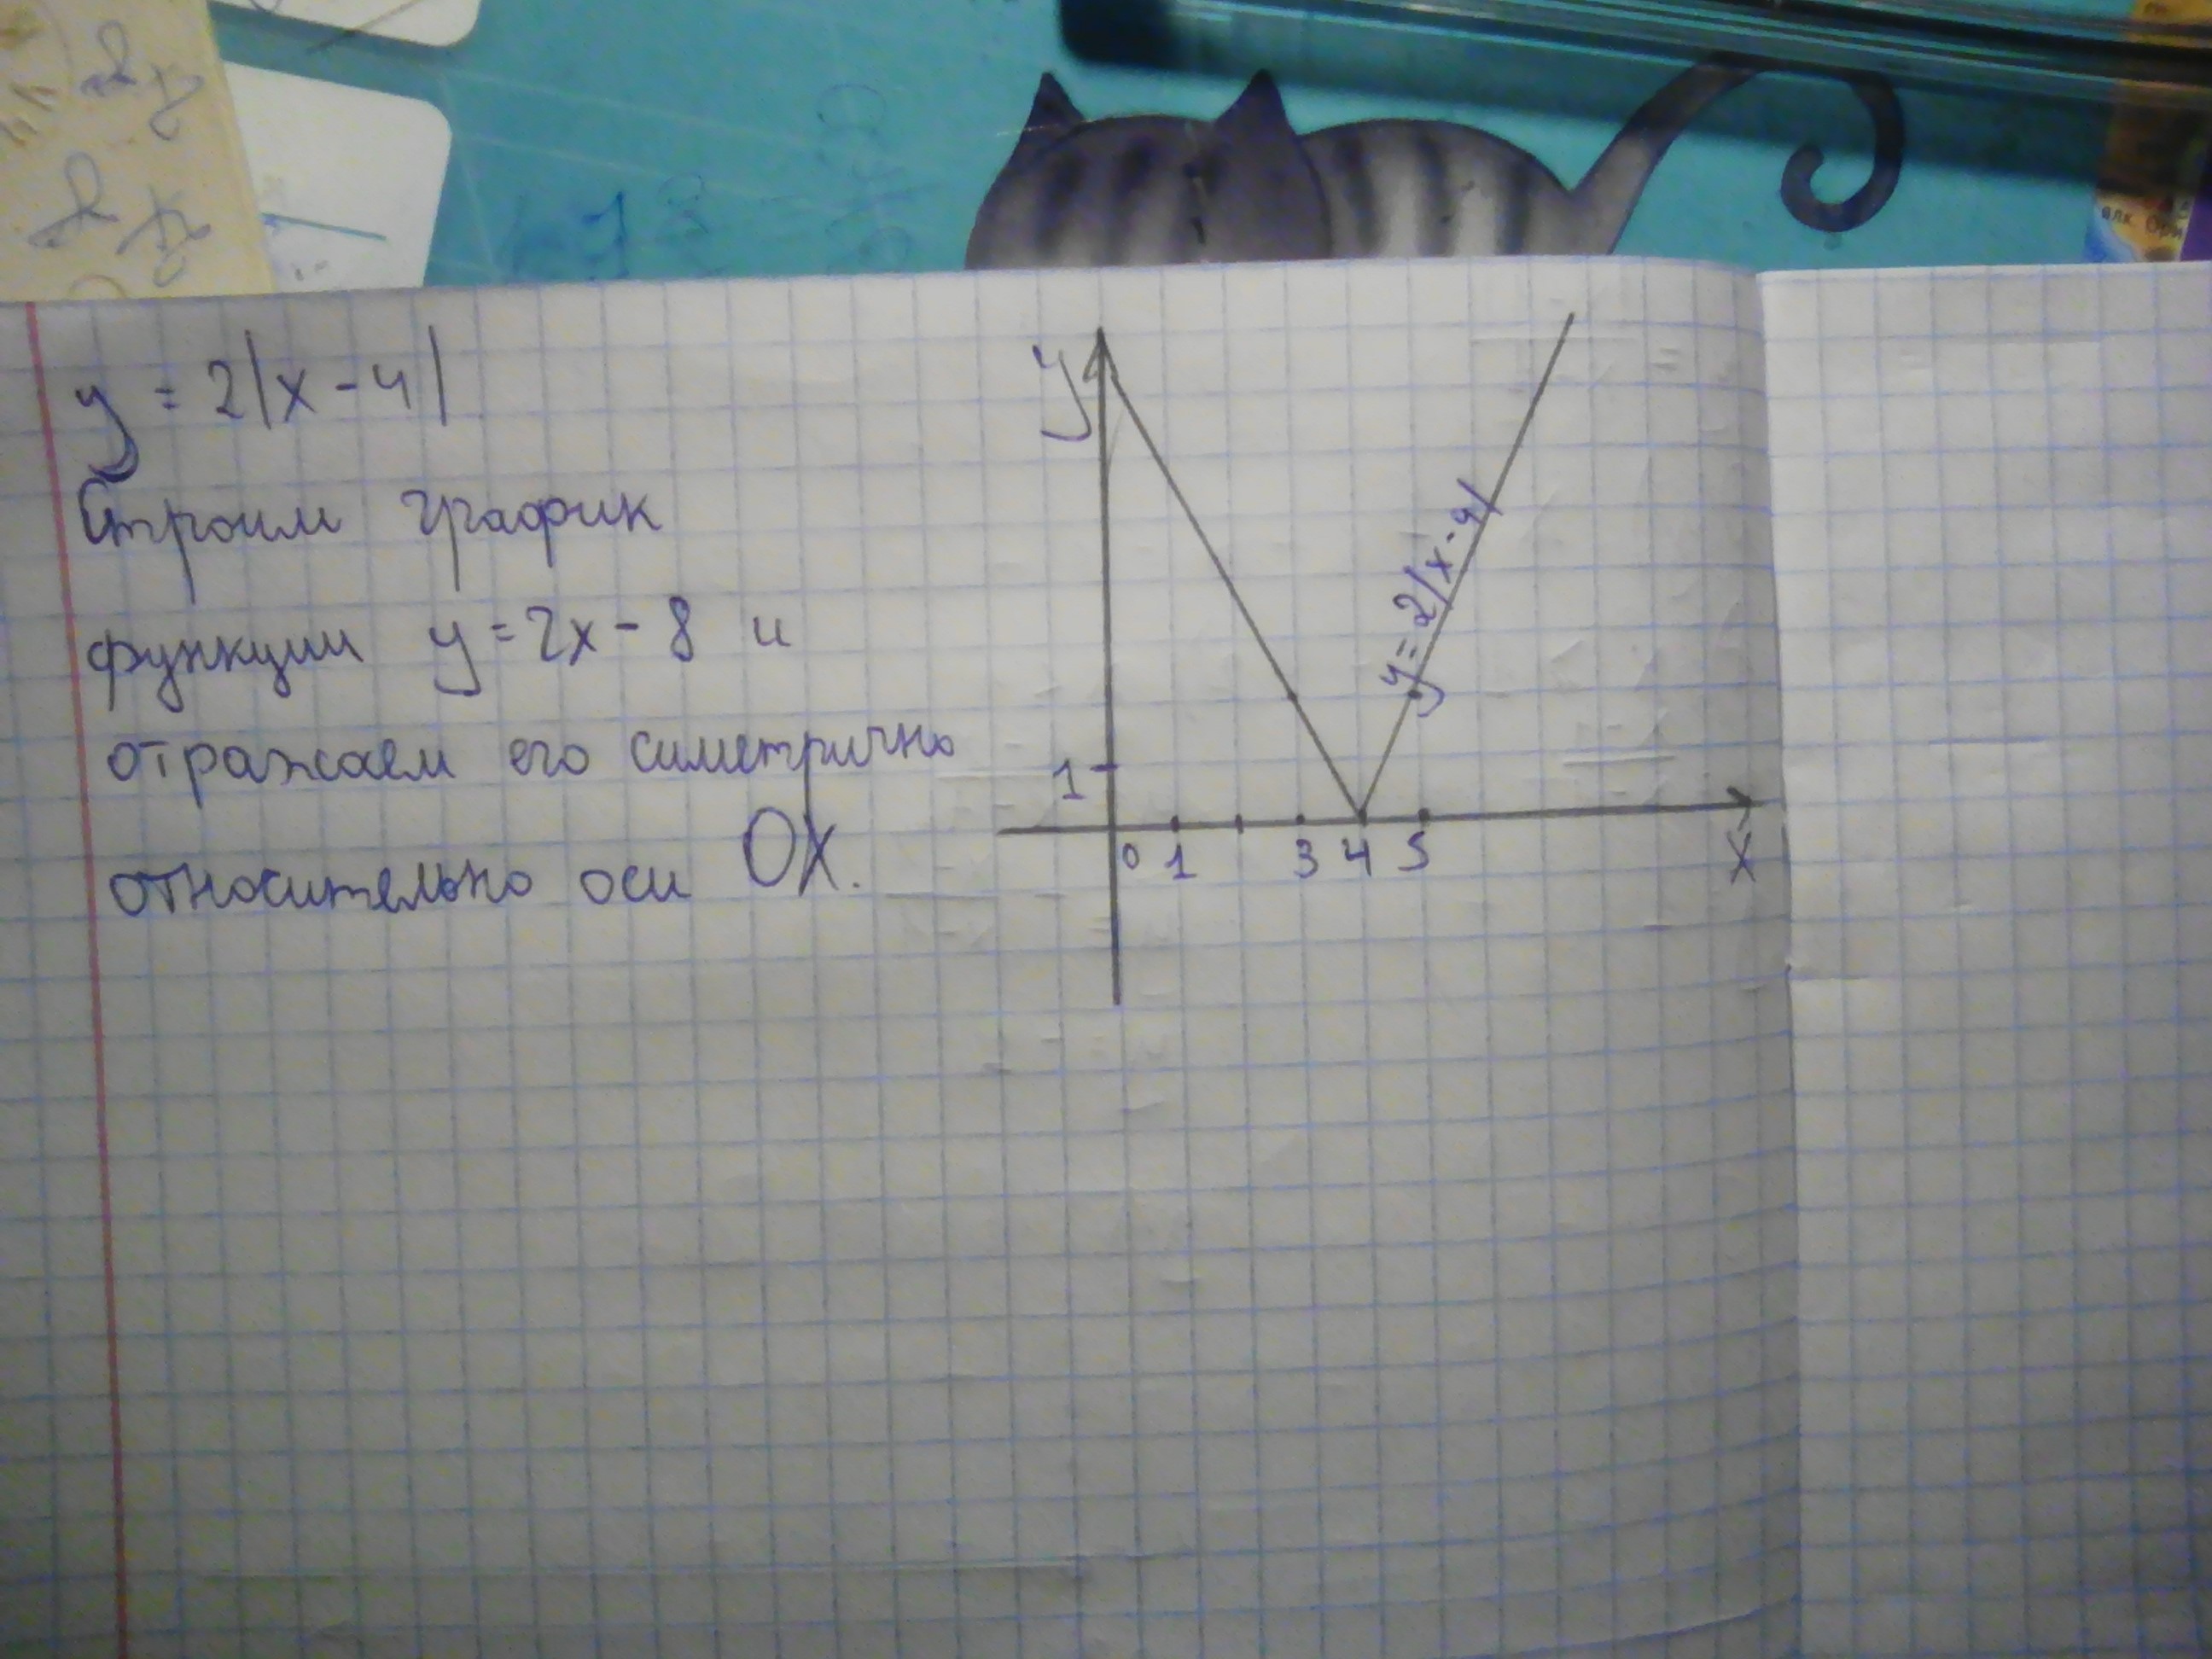 y = 2|x - 4|
Строим график
функции y = 2x - 8 и
отражаем его симетрично
относительно оси OX.
y
y = 2|x - 4|
1
0 1 3 4 5
X